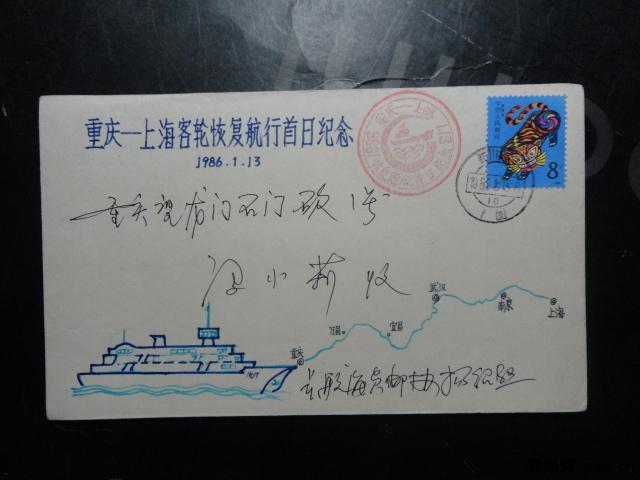 重庆—上海客轮恢复航行首日纪念
1986.1.13
中国人民邮政
8
重庆—上海
1986 1.13
重庆望龙门石门砍1号
梁小莉 收
重庆
万县
宜昌
武汉
南京
上海
长航海员邮协